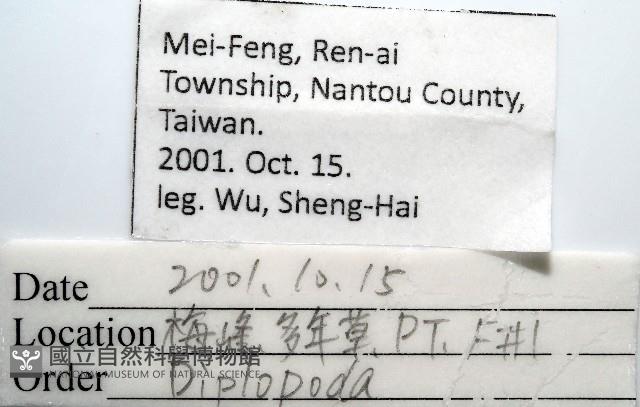 Mei-Feng, Ren-ai
Township, Nantou County,
Taiwan.
2001. Oct. 15.
leg. Wu, Sheng-Hai
Date 2001. 10. 15
Location 梅峰 多年草. P.T. F#1
國立自然科學博物館
NATIONAL MUSEUM OF NATURAL SCIENCE
Order Diplopoda